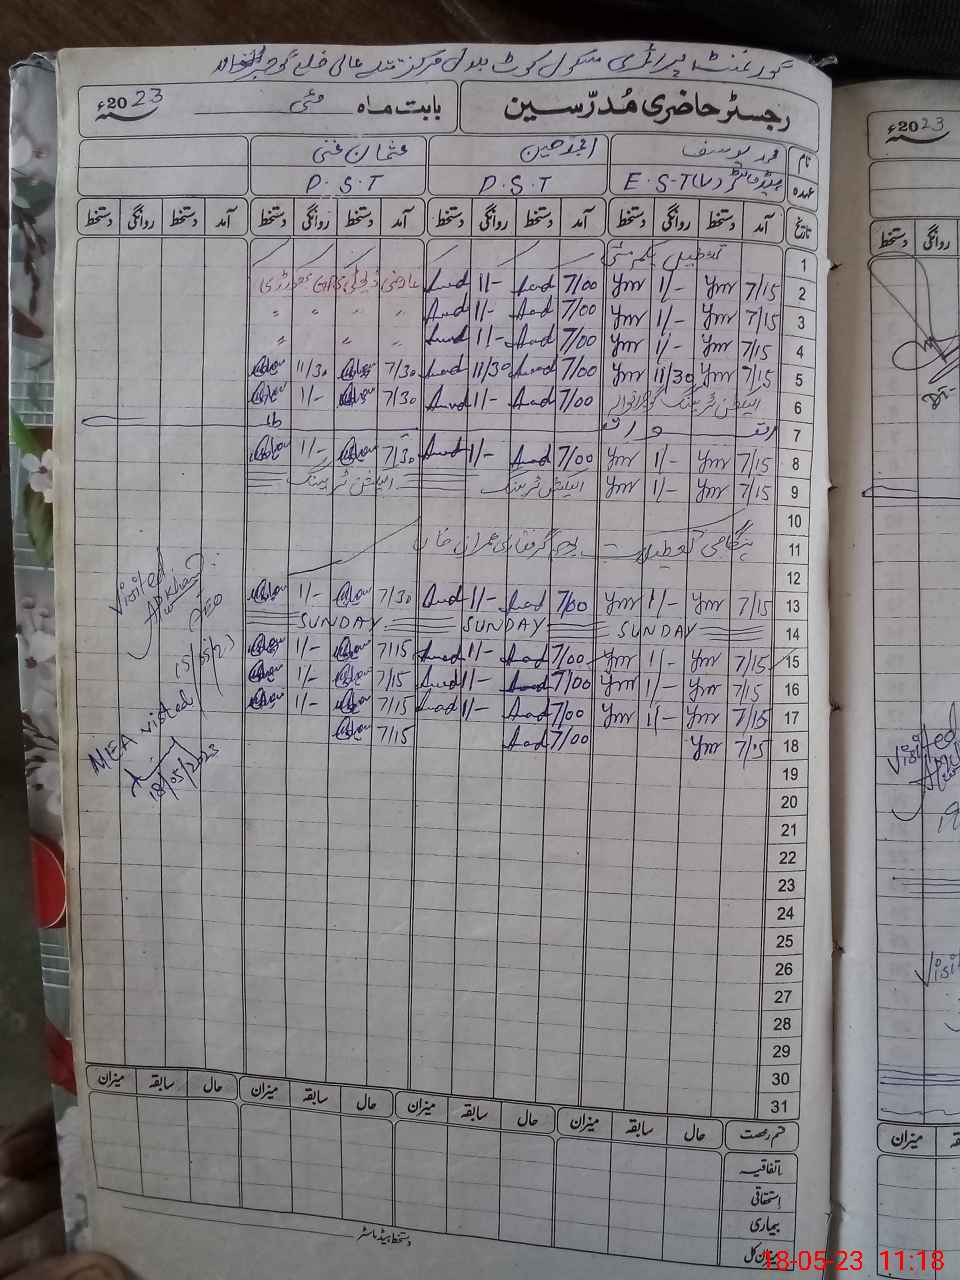 گورنمنٹ پرائمری سکول کوٹ بلال مرکز تتلے عالی ضلع گوجرانوالہ
رجسٹر حاضری مُدرّسین بابت ماہ مئی 2023ء
نام محمد یوسف امجد حسین عثمان غنی
عہدہ ہیڈ ماسٹر E.S.T(V) P.S.T P.S.T
تاریخ آمد دستخط روانگی دستخط آمد دستخط روانگی دستخط آمد دستخط روانگی دستخط آمد دستخط روانگی دستخط
1 تعطیل یکم مئی
2 7/15 Ym 1/- Ym 7/00 Amd 1/- Amd عارضی ڈیوٹی
3 7/15 Ym 1/- Ym 7/00 Amd 1/- Amd " " " "
4 7/15 Ym 1/- Ym 7/00 Amd 1/- Amd " " "
5 7/15 Ym 11/30 Ym 7/00 Amd 11/30 Amd 7/30 11/30
6 الیکشن ٹریننگ گوجرانوالہ 7/00 Amd 1/- Amd 7/30 1/-
7 اتوار
8 7/15 Ym 1/- Ym 7/00 Amd 1/- Amd 7/30 1/-
9 7/15 Ym 1/- Ym الیکشن ٹریننگ الیکشن ٹریننگ
10
11 ہنگامی تعطیلات بوجہ گرفتاری عمران خان
12
13 7/15 Ym 1/- Ym 7/00 Amd 1/- Amd 7/30 1/-
14 SUNDAY SUNDAY SUNDAY
15 7/15 Ym 1/- Ym 7/00 Amd 1/- Amd 7/15 1/-
16 7/15 Ym 1/- Ym 7/00 Amd 1/- Amd 7/15 1/-
17 7/15 Ym 1/- Ym 7/00 Amd 1/- Amd 7/15 1/-
18 7/15 Ym 7/00 Amd 7/15
19
20
21
22
23
24
25
26
27
28
29
30
31
Visited
AEO
15/05/23
MEA visited
18/05/2023
قسم رخصت حال سابقہ میزان حال سابقہ میزان حال سابقہ میزان حال سابقہ میزان
اتفاقیہ
استحقاقی
بیماری
میزان کل
دستخط ہیڈ ماسٹر
2023ء
دستخط روانگی
Visited
میزان
18-05-23 11:18